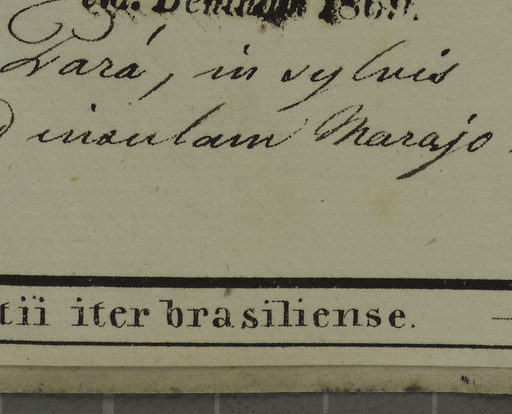 Bentham 1869.
Pará, in sylvis
insulam Marajo
tii iter brasiliense.